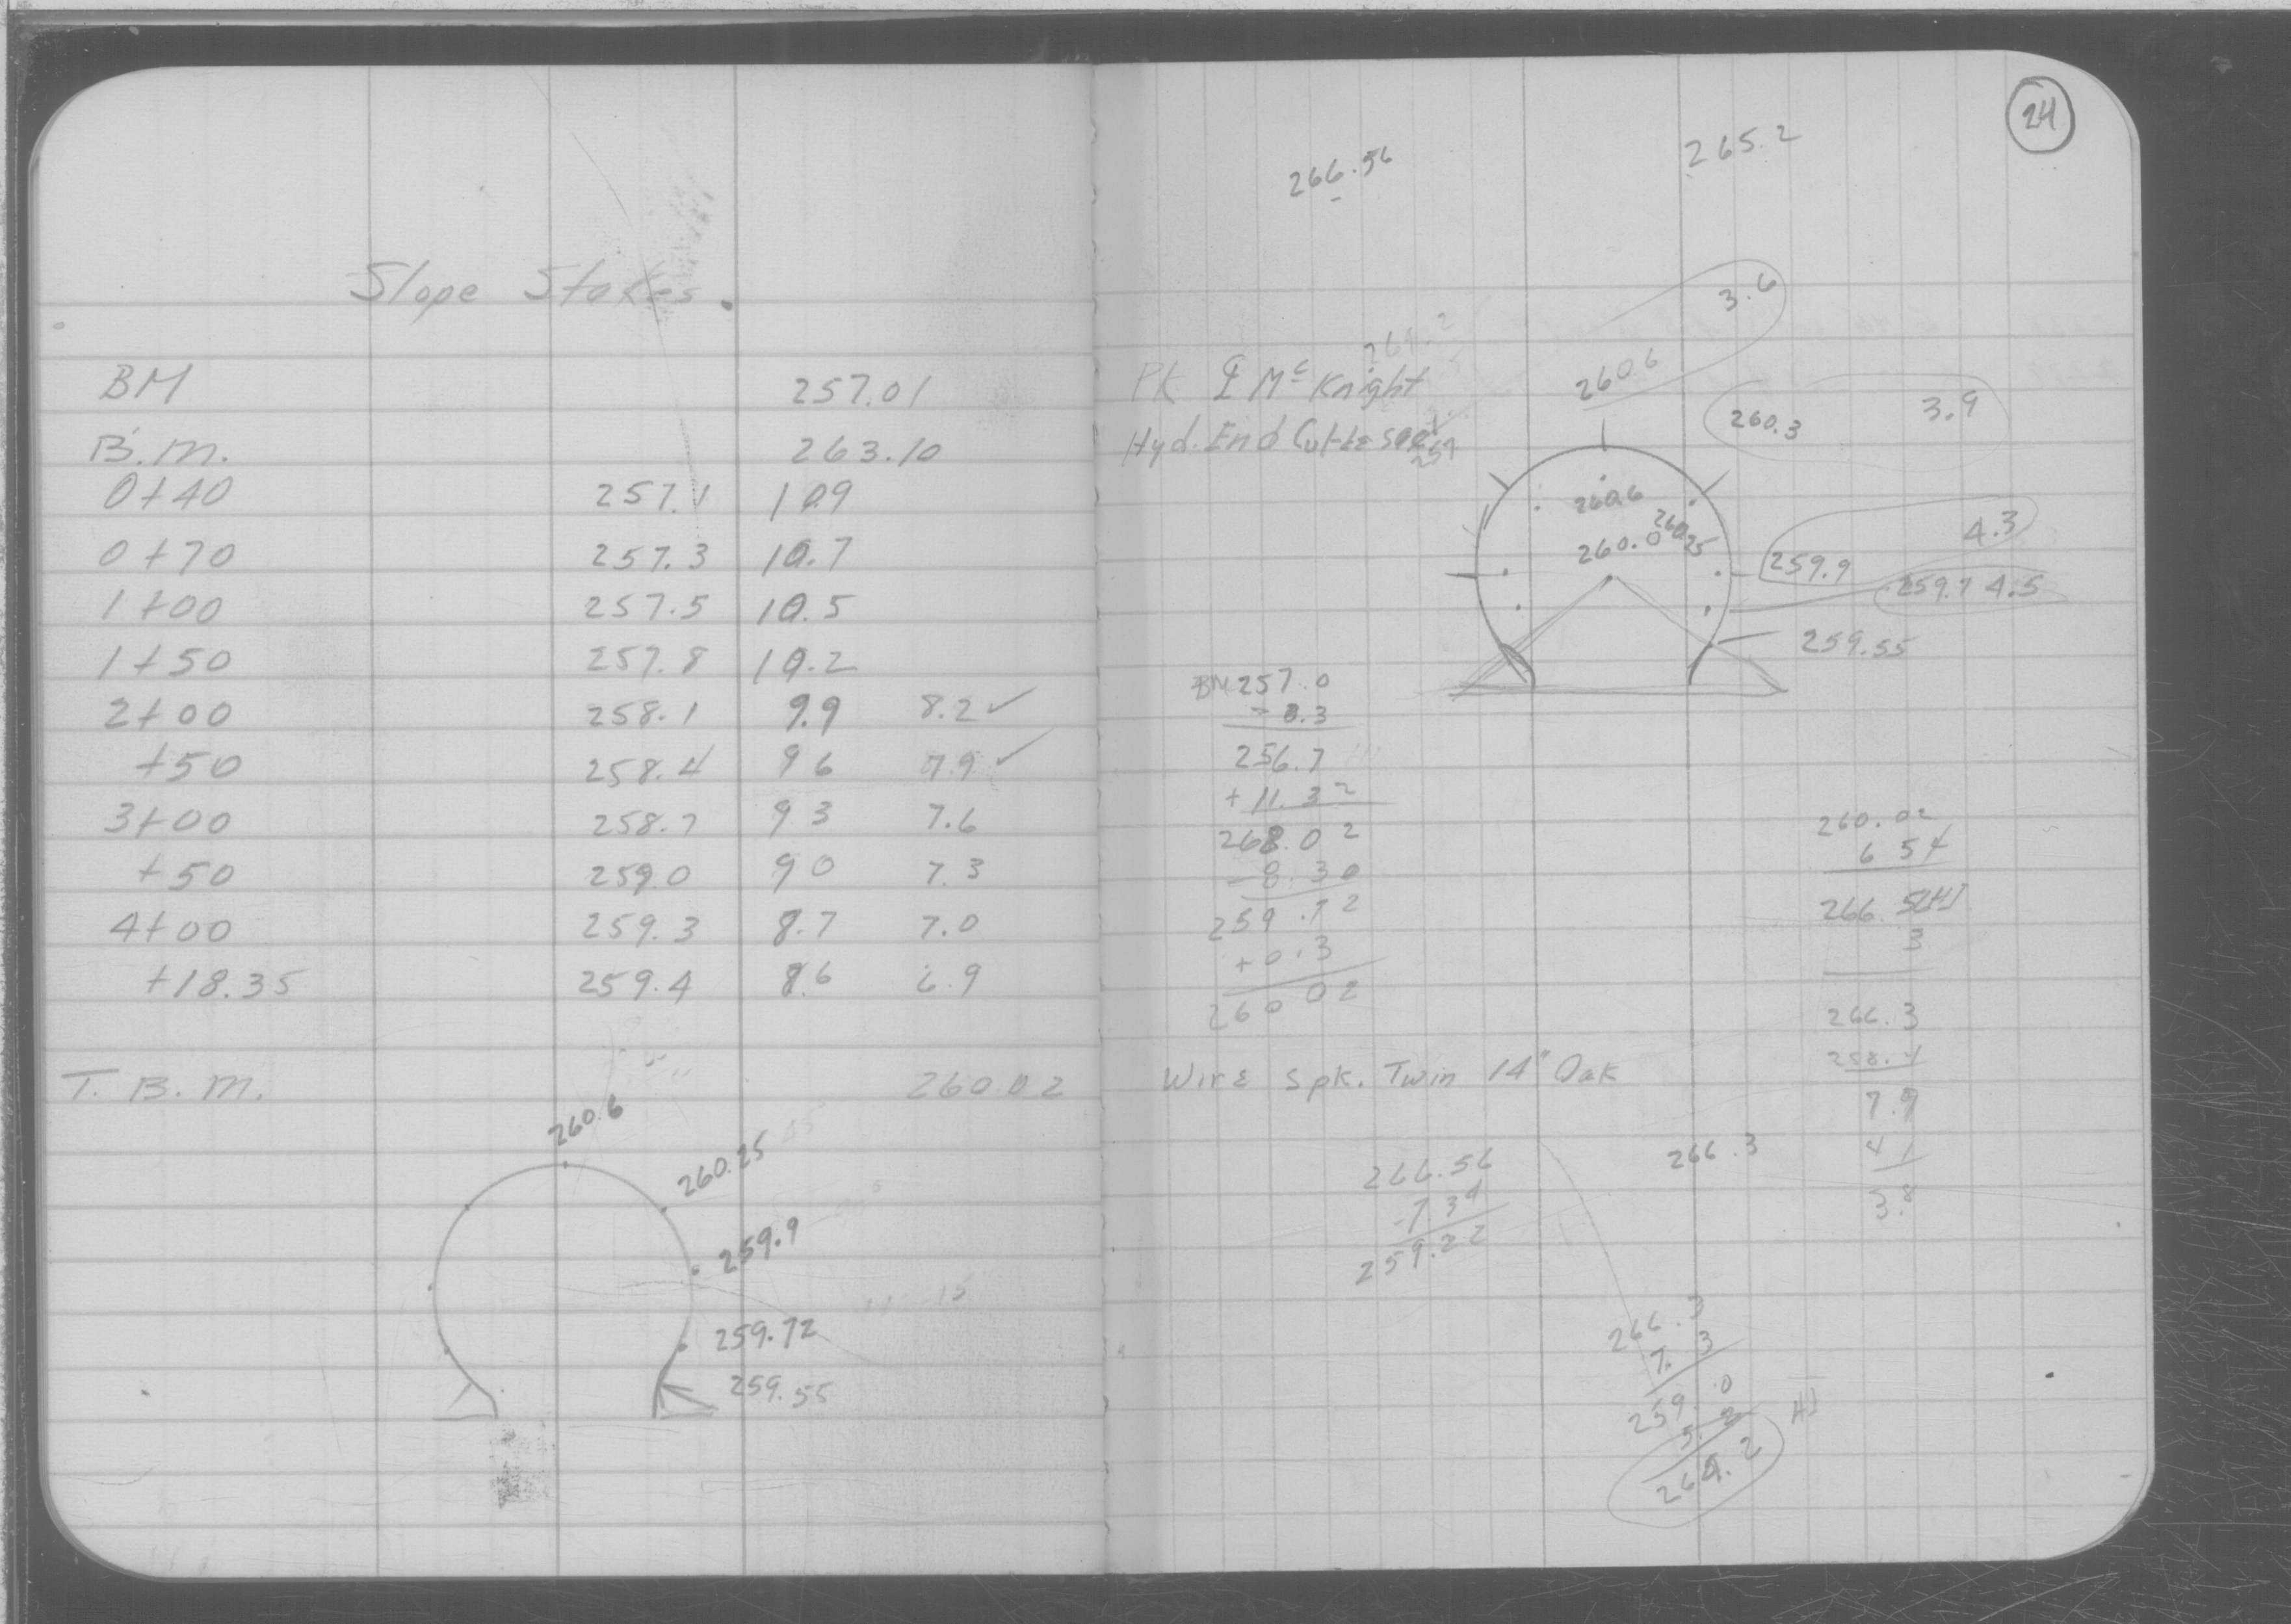 Slope Stakes.
BM 257.01
B.M. 263.10
0+40 257.1 10.9
0+70 257.3 10.7
1+00 257.5 10.5
1+50 257.8 10.2
2+00 258.1 9.9 8.2 ✓
+50 258.4 9 6 7.9 ✓
3+00 258.7 9 3 7.6
+50 259.0 9 0 7.3
4+00 259.3 8.7 7.0
+18.35 259.4 8.6 6.9
T. B. M. 260.02
260.6
260.25
259.9
259.72
259.55
24
266.56
265.2
3.6
260.6
Pk ℄ Mc Knight
260.3 3.9
Hyd. End
260.6
260.25
260.0
4.3
259.9
259.7 4.5
259.55
BM 257.0
- 0.3
256.7
+ 11.32
268.02
- 8.30
259.72
+ 0.3
260 02
260.02
6 54
266.56 HI
3
266.3
258.4
7.9
4 1
3.8
Wire Spk. Twin 14" Oak
266.3
266.56
-7 34
259.22
266.3
7.3
259.0
5.2
264.2
HI